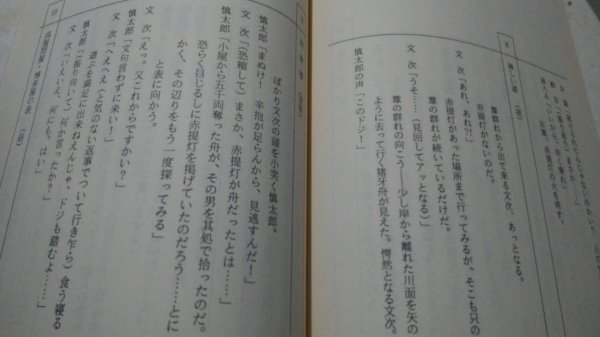 8 淋しい道（夜）
葦群れから出て来る文次、あっとなる。
赤提灯がないのだ。
文　次「あれ、あれ⁈」
赤提灯があった場所まで行ってみるが、そこも只の
葦の群れが続いているだけだ。
文　次「うそ……（見回してアッとなる）」
葦の群れの向こう――少し岸から離れた川面を矢の
ように去って行く猪牙舟が見えた。愕然となる文次。
慎太郎の声「このドジ！」
（夜）
ぽかり文次の頭を小突く慎太郎。
慎太郎「まぬけ！　辛抱が足らんから、見逃すんだ！」
文　次「（恐縮して）まさか、赤提灯が舟だったとは……」
慎太郎「小屋から五千両奪った舟が、その男を其処で拾ったのだ。
恐らく目じるしに赤提灯を掲げていたのだろう……とに
かく、その辺りをもう一度探ってみる」
と表に向かう。
文　次「えっ。又これからですかい？」
慎太郎「文句言わずに来い！」
文　次「へえへえ（と気のない返事でついて行き乍ら）食う寝る
遊ぶを満足に出来ねえんじゃ、ドジも踏むよ……」
慎太郎「（振り向いて）何か言ったか？」
文　次「いえいえ、何にも、はい」
10
（夜）